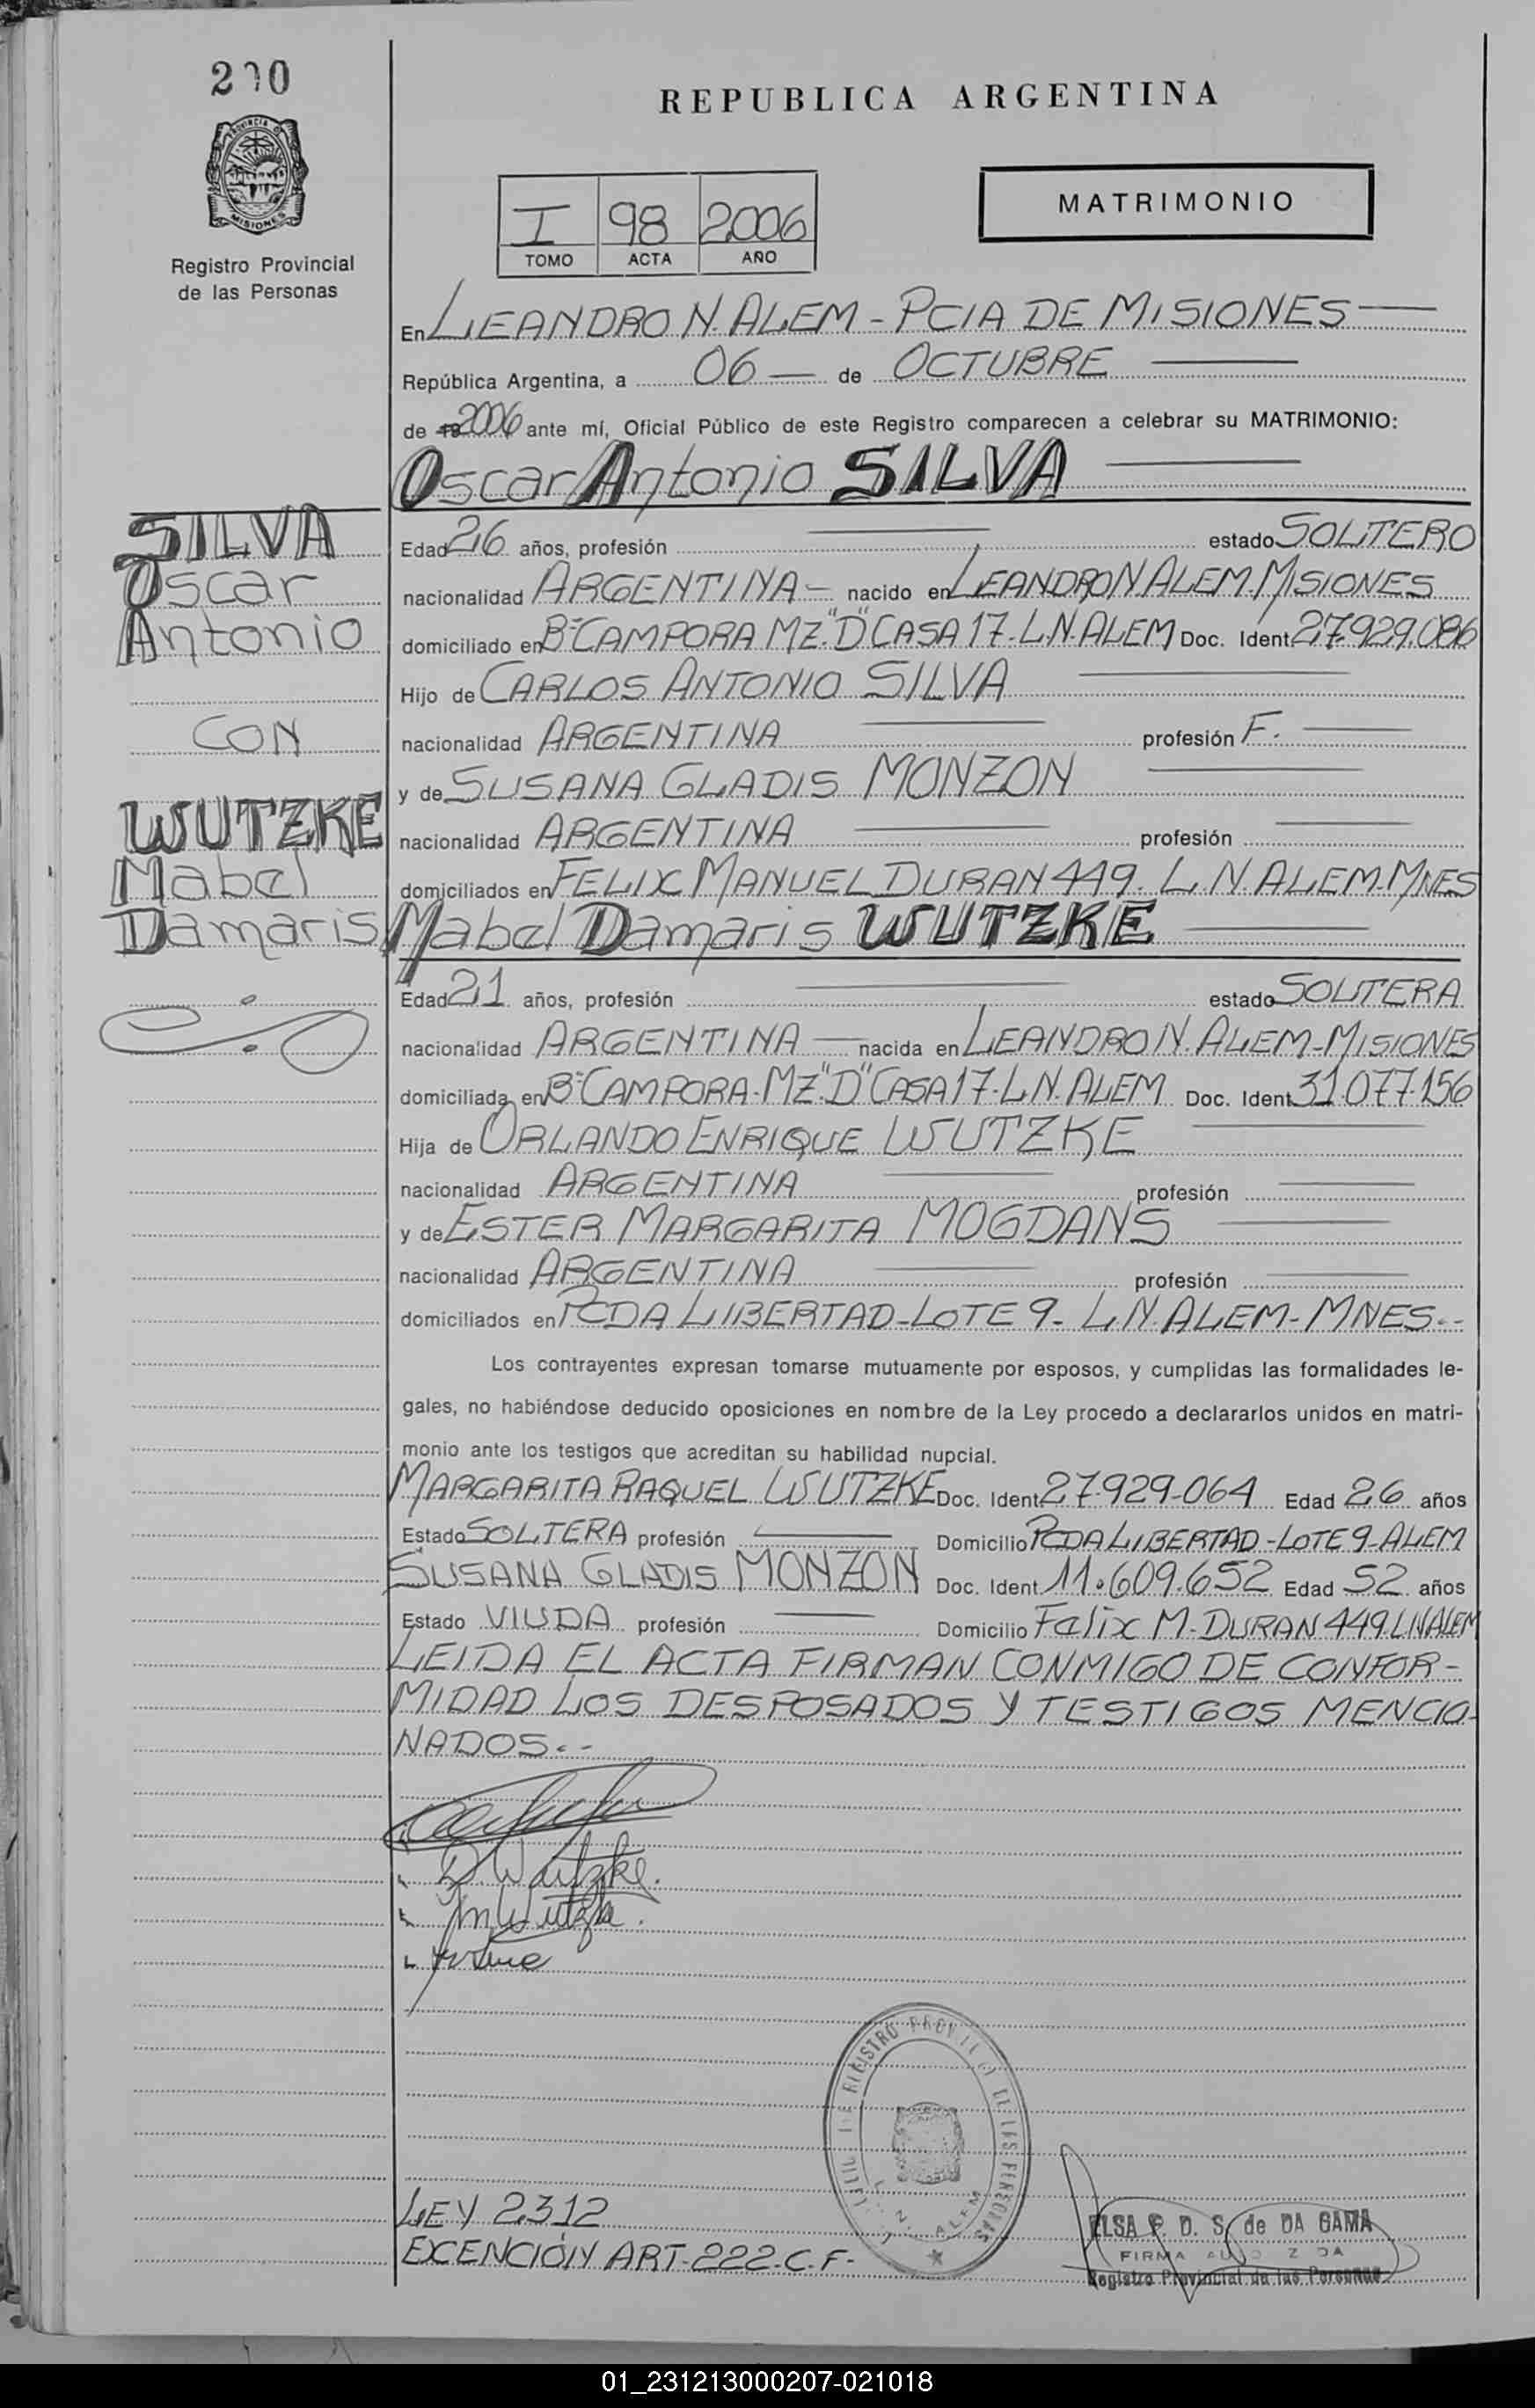 REPUBLICA ARGENTINA
MATRIMONIO
I 98 2006
TOMO ACTA AÑO
MISIONES
Registro Provincial
de las Personas
En LEANDRO N. ALEM - PCIA DE MISIONES
República Argentina, a 06 de OCTUBRE
de 19 2006 ante mí, Oficial Público de este Registro comparecen a celebrar su MATRIMONIO:
Oscar Antonio SILVA
SILVA
Oscar
Antonio
CON
WUTZKE
Mabel
Damaris
Edad 26 años, profesión estado SOLTERO
nacionalidad ARGENTINA - nacido en LEANDRO N ALEM. MISIONES
domiciliado en B° CAMPORA MZ. "D" CASA 17 - L.N. ALEM Doc. Ident. 27.929.086
Hijo de CARLOS ANTONIO SILVA
nacionalidad ARGENTINA profesión F.
y de SUSANA GLADIS MONZON
nacionalidad ARGENTINA profesión
domiciliados en FELIX MANUEL DURAN 449. L.N. ALEM - MNES
Mabel Damaris WUTZKE
Edad 21 años, profesión estado SOLTERA
nacionalidad ARGENTINA nacida en LEANDRO N. ALEM - MISIONES
domiciliada en B° CAMPORA - MZ. "D" CASA 17 - L.N. ALEM Doc. Ident. 31.077.156
Hija de ORLANDO ENRIQUE WUTZKE
nacionalidad ARGENTINA profesión
y de ESTER MARGARITA MOGDANS
nacionalidad ARGENTINA profesión
domiciliados en PCDA LIBERTAD - LOTE 9 - L.N. ALEM - MNES.-
Los contrayentes expresan tomarse mutuamente por esposos, y cumplidas las formalidades le-
gales, no habiéndose deducido oposiciones en nombre de la Ley procedo a declararlos unidos en matri-
monio ante los testigos que acreditan su habilidad nupcial.
MARGARITA RAQUEL WUTZKE Doc. Ident. 27.929.064 Edad 26 años
Estado SOLTERA profesión Domicilio PCDA LIBERTAD - LOTE 9 - ALEM
SUSANA GLADIS MONZON Doc. Ident. 11.609.652 Edad 52 años
Estado VIUDA profesión Domicilio Felix M. DURAN 449 L.N ALEM
LEIDA EL ACTA FIRMAN CONMIGO DE CONFOR-
MIDAD LOS DESPOSADOS Y TESTIGOS MENCIO-
NADOS.-
D. Wutzke.
M. Wutzke.
LEY 2312
EXENCIÓN ART. 222. C. F.
L. N. ALEM
ELSA P. D. S. de DA GAMA
Registro Provincial de las Personas
01_231213000207-021018